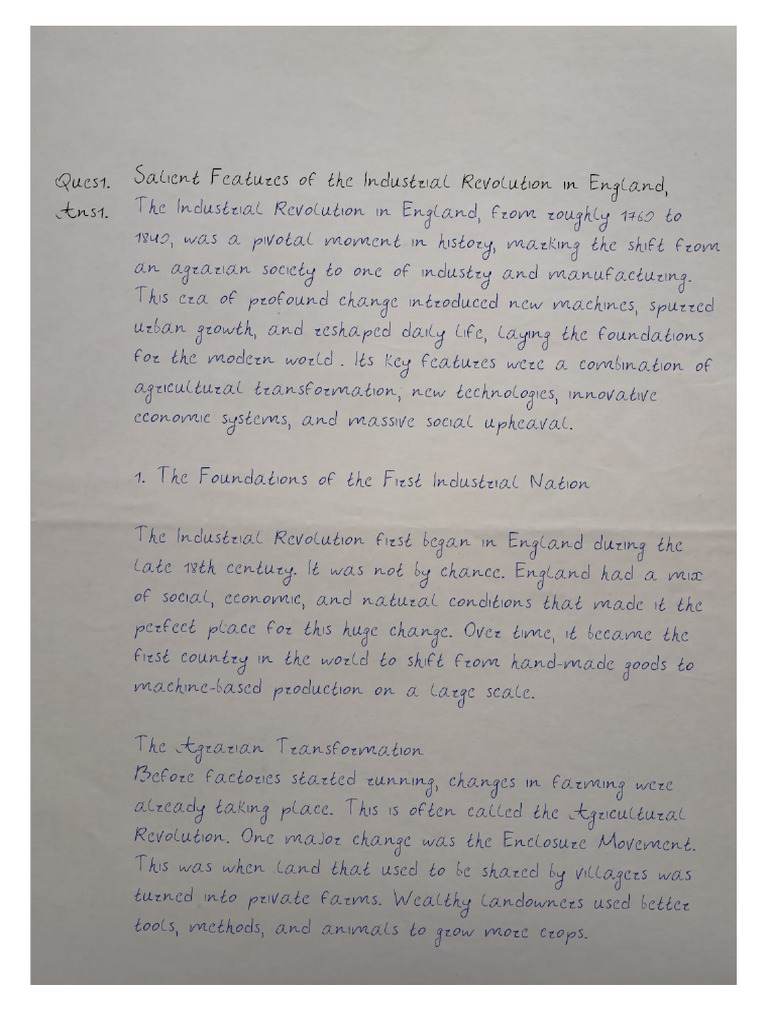 Ques1. Salient Features of the Industrial Revolution in England,
Ans1. The Industrial Revolution in England, from roughly 1760 to
1840, was a pivotal moment in history, marking the shift from
an agrarian society to one of industry and manufacturing.
This era of profound change introduced new machines, spurred
urban growth, and reshaped daily life, laying the foundations
for the modern world. Its key features were a combination of
agricultural transformation, new technologies, innovative
economic systems, and massive social upheaval.
1. The Foundations of the First Industrial Nation
The Industrial Revolution first began in England during the
late 18th century. It was not by chance. England had a mix
of social, economic, and natural conditions that made it the
perfect place for this huge change. Over time, it became the
first country in the world to shift from hand-made goods to
machine-based production on a large scale.
The Agrarian Transformation
Before factories started running, changes in farming were
already taking place. This is often called the Agricultural
Revolution. One major change was the Enclosure Movement.
This was when land that used to be shared by villagers was
turned into private farms. Wealthy landowners used better
tools, methods, and animals to grow more crops.